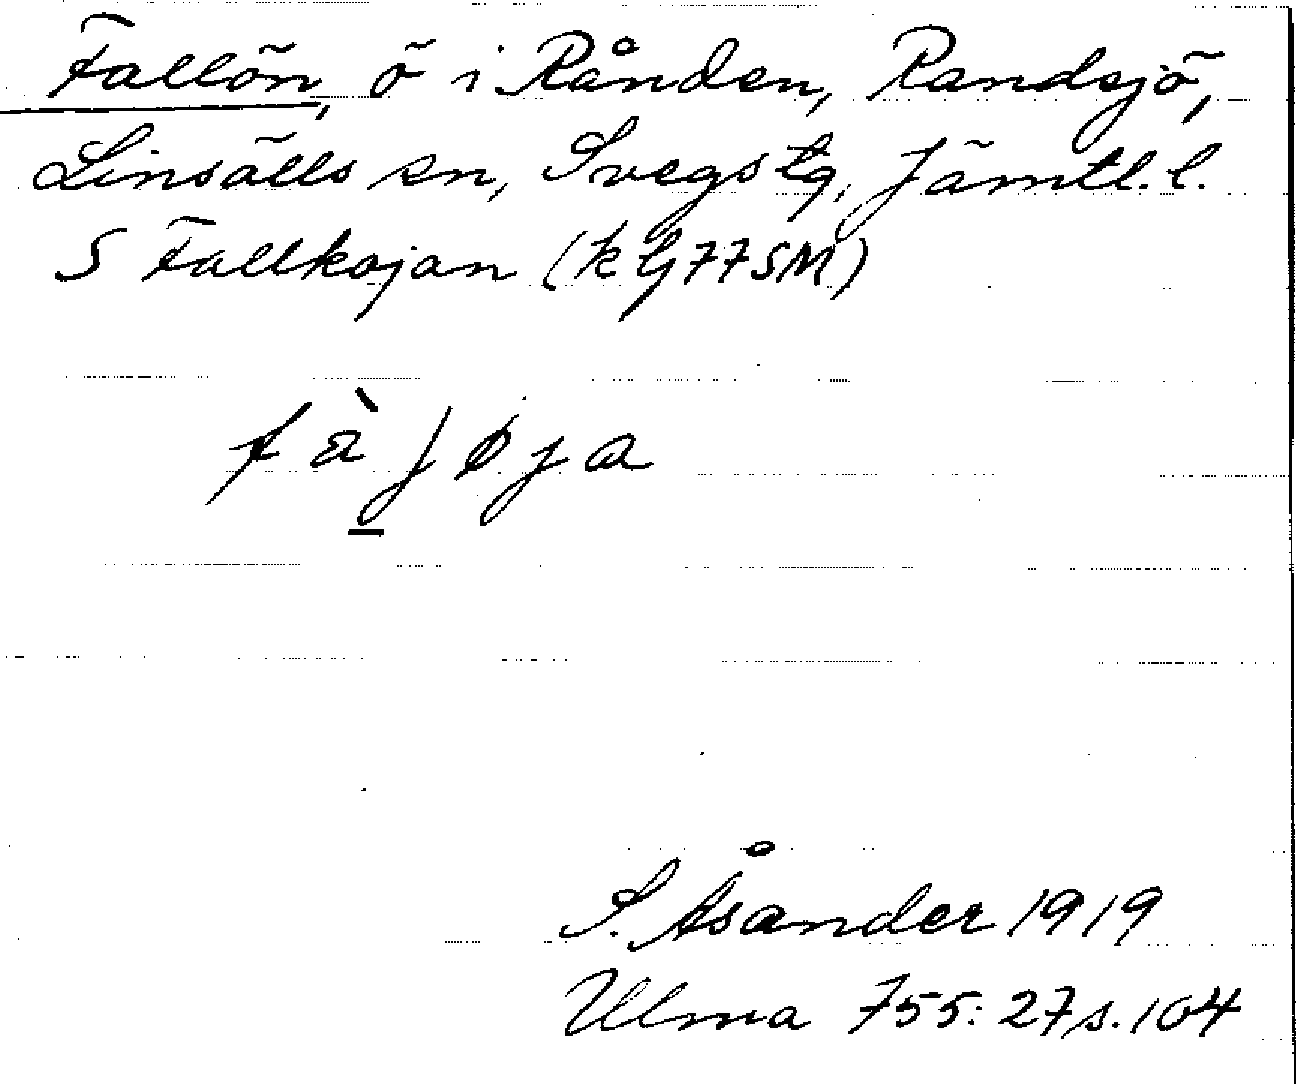 Fallön, ö i Rånden, Randsjö,
Linsälls sn, Svegs tg, Jämtl. l.
S Fallkojan (k G77SM)
S. Åsander 1919
Ulma 755:27 s. 104